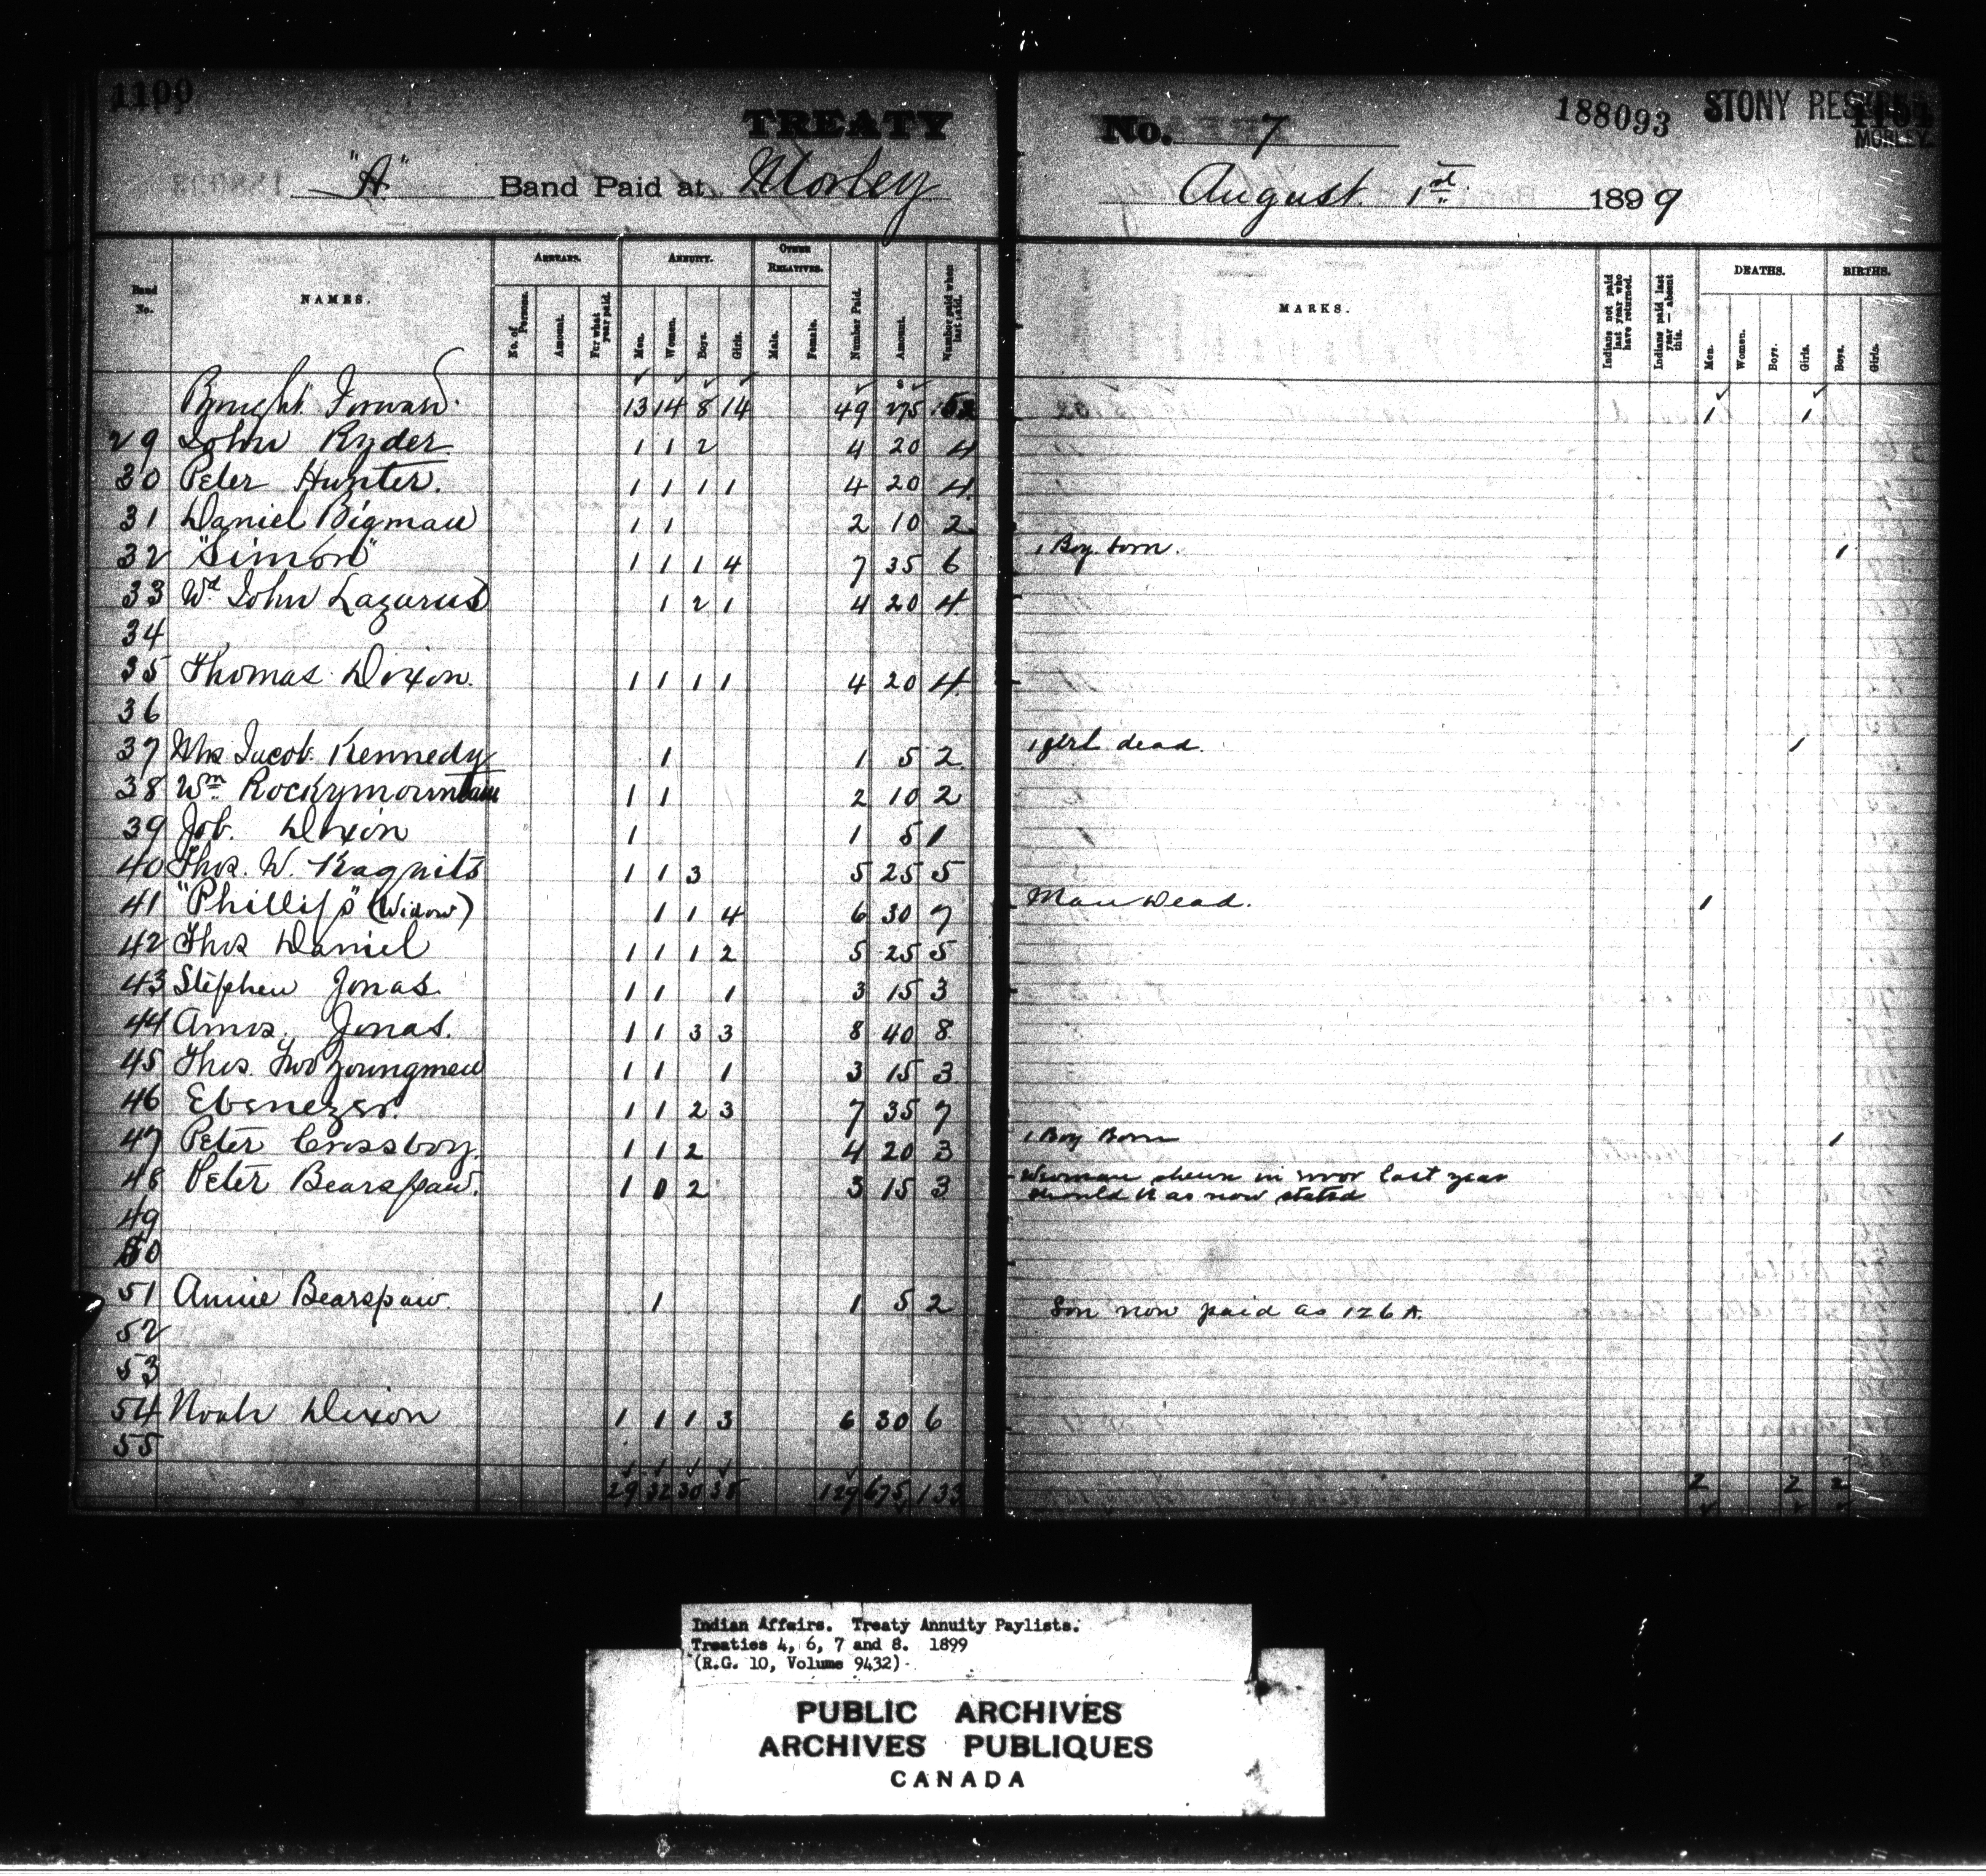 1100
TREATY No. 7
188093 STONY RESERVE
MORLEY
"A" Band Paid at Morley August 1st 1899
Band No. NAMES. ARREARS. ANNUITY. OTHER RELATIVES. Number Paid. Amount. Number paid when last paid. MARKS. Indians not paid last year who have returned. Indians paid last year — absent this. DEATHS. BIRTHS.
No. of Persons. Amount. For what year paid. Men. Women. Boys. Girls. Male. Female. Men. Women. Boys. Girls. Boys. Girls.
Brought Forward. 13 14 8 14 49 275 52 1 1
29 John Ryder 1 1 2 4 20 4
30 Peter Hunter. 1 1 1 1 4 20 4
31 Daniel Bigman 1 1 2 10 2
32 "Simon" 1 1 1 4 7 35 6 1 Boy born. 1
33 Wd John Lazarus 1 2 1 4 20 4
34
35 Thomas Dixon. 1 1 1 1 4 20 4
36
37 Mrs Jacob Kennedy 1 1 5 2 1 girl dead. 1
38 Wm Rockymountain 1 1 2 10 2
39 Job. Dixon 1 1 5 1
40 Thos. W. Kagnits 1 1 3 5 25 5
41 "Phillips" (Widow) 1 1 4 6 30 7 Man Dead. 1
42 Thos Daniel 1 1 1 2 5 25 5
43 Stephen Jonas. 1 1 1 3 15 3
44 Amos. Jonas. 1 1 3 3 8 40 8
45 Thos. Two Youngmen 1 1 1 3 15 3
46 Ebenezer. 1 1 2 3 7 35 7
47 Peter Crossboy. 1 1 2 4 20 3 1 Boy Born 1
48 Peter Bearspaw. 1 0 2 3 15 3 Woman shewn in error last year
should be as now stated
49
50
51 Annie Bearspaw. 1 1 5 2 Son now paid as 126 A.
52
53
54 Noah Dixon 1 1 1 3 6 30 6
55
29 32 30 38 129 675 133 2 2 2
Indian Affairs. Treaty Annuity Paylists.
Treaties 4, 6, 7 and 8. 1899
(R.G. 10, Volume 9432)
PUBLIC ARCHIVES
ARCHIVES PUBLIQUES
CANADA